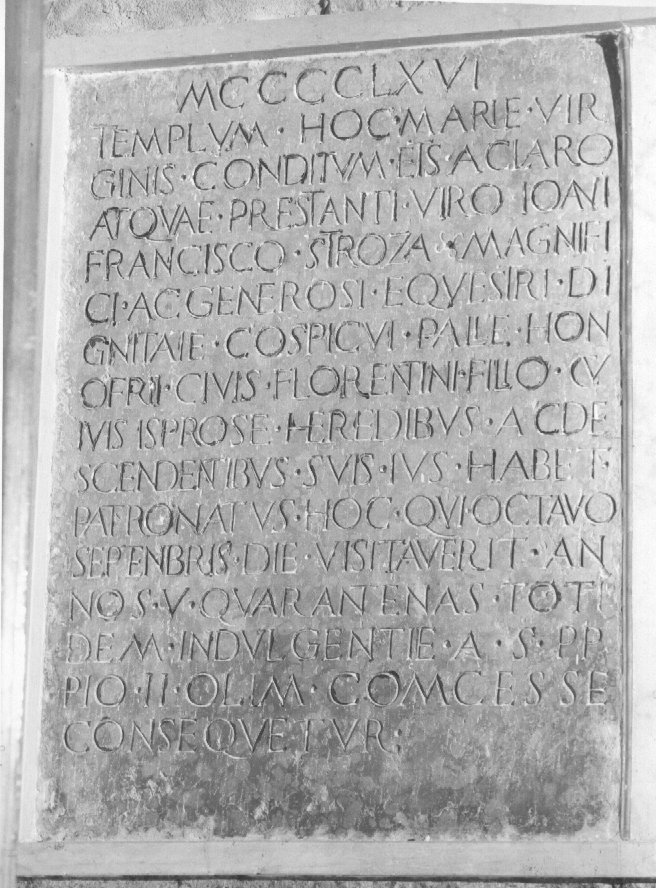 MCCCCLXVI
TEMPLVM · HOC · MARIE · VIR
GINIS · CONDITVM · EIS · A CLARO
ATQVAE · PRESTANTI · VIRO IOANI
FRANCISCO · STROZA · MAGNIFI
CI · AC GENEROSI · EQVESTRI · DI
GNITAIE · COSPICVI · PALLE · HON
OFRII · CIVIS · FLORENTINI · FILIO · CV
IVIS ISPROSE · HEREDIBVS · A C DE
SCENDENTIBVS · SVIS · IVS · HABET
PATRONATVS · HOC · QVI OCTAVO
SEPENBRIS · DIE · VISITAVERIT · AN
NOS · V · QVARANTENAS · TOTI
DEM · INDVLGENTIE · A · S · PP
PIO · II · OLIM · COMCESSE
CONSEQVETVR ·